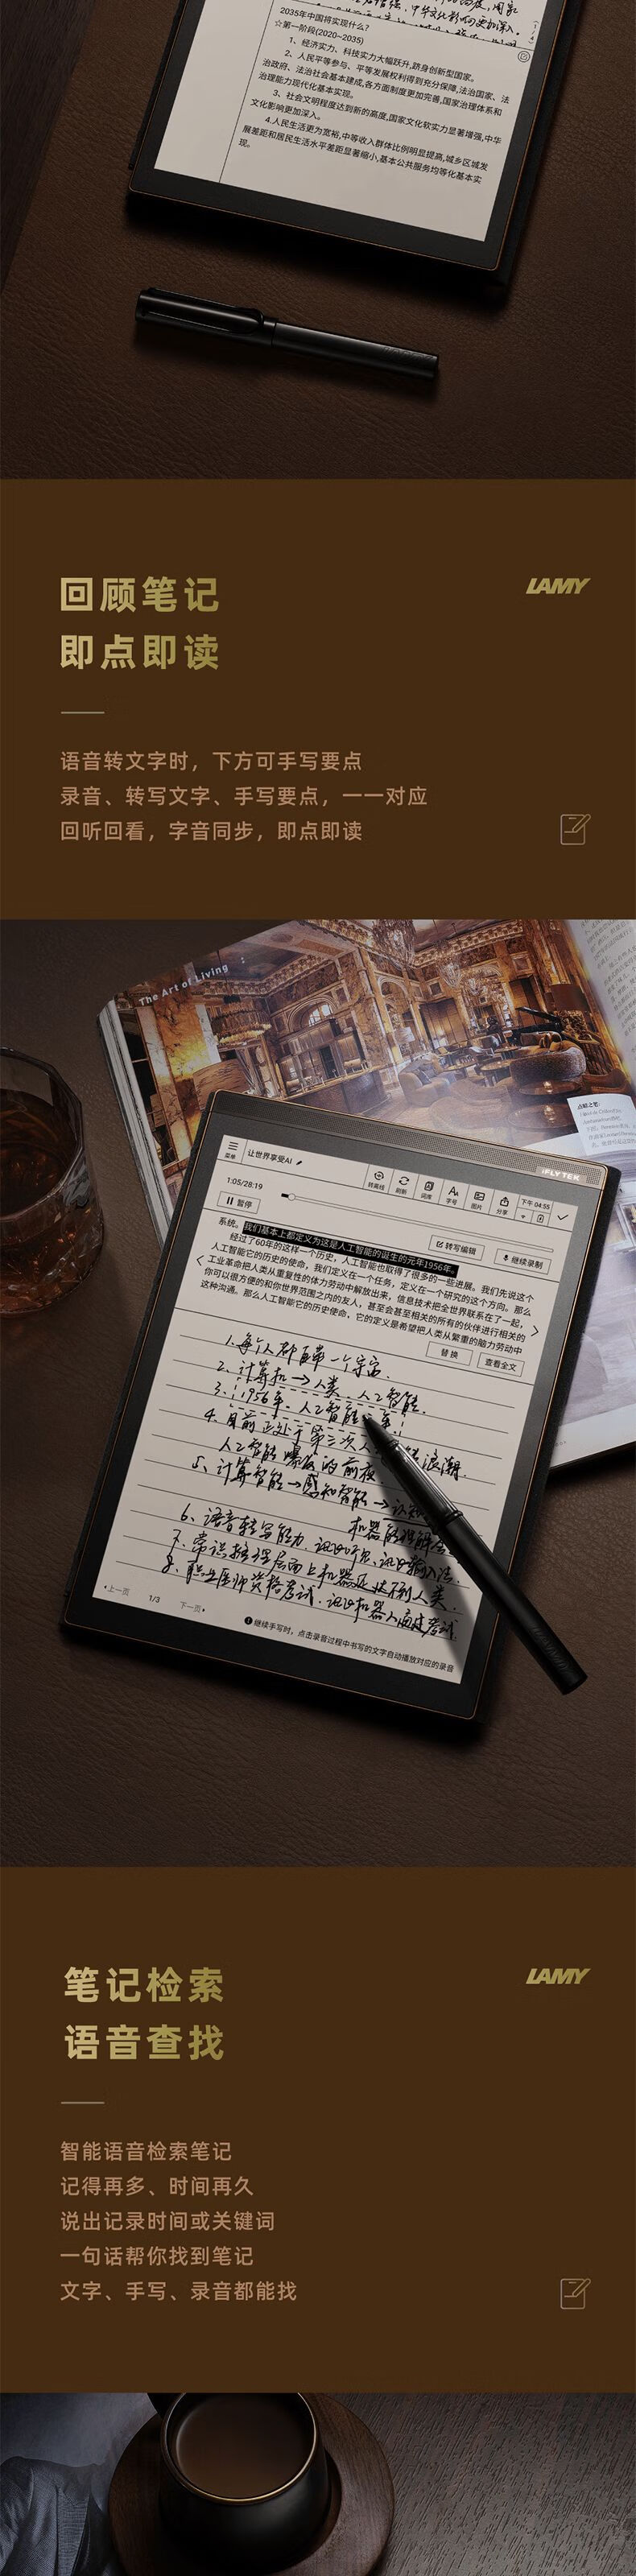 2035年中国将实现什么?
☆第一阶段(2020~2035)
1、经济实力、科技实力大幅跃升,跻身创新型国家。
2、人民平等参与、平等发展权利得到充分保障,法治国家、法
治政府、法治社会基本建成,各方面制度更加完善,国家治理体系和
治理能力现代化基本实现。
3、社会文明程度达到新的高度,国家文化软实力显著增强,中华
文化影响更加深入。
4.人民生活更为宽裕,中等收入群体比例明显提高,城乡区域发
展差距和居民生活水平差距显著缩小,基本公共服务均等化基本实
现。
回顾笔记
即点即读
LAMY
语音转文字时，下方可手写要点
录音、转写文字、手写要点，一一对应
回听回看，字音同步，即点即读
The Art of Living
iFLYTEK
菜单
让世界享受AI
转离线
刷新
词库
字号
图片
分享
下午 04:55
1:05/28:19
暂停
转写编辑
继续录制
系统。我们基本上都定义为这是人工智能的诞生的元年1956年。
经过了60年的这样一个历史，人工智能也取得了很多的一些进展。我们先说这个
人工智能它的历史的使命，我们定义在一个任务，定义在一个研究的这个方向。那么
工业革命把人类从重复性的体力劳动中解放出来，信息技术把全世界联系在了一起，
你可以很方便的和你世界范围之内的友人，甚至会甚至相关的所有的伙伴进行相关的
这种沟通。那么人工智能它的历史使命，它的定义是希望把人类从繁重的脑力劳动中
替换
查看全文
1.每个人都自带一个宇宙.
2.计算机→人类.人工智能.
3.1956年.人工智能元年!
4.目前正处于第三次人
人工智能爆发的前夜
浪潮.
5、计算智能→感知智能→认知
机器能理解会
6、语音转写能力.讯飞听见、讯飞输入法.
7.常识推理层面上机器还达不到人类.
8.职业医师资格考试.讯飞机器人通过考试
上一页
1/3
下一页
继续手写时，点击录音过程中书写的文字自动播放对应的录音
笔记检索
语音查找
LAMY
智能语音检索笔记
记得再多、时间再久
说出记录时间或关键词
一句话帮你找到笔记
文字、手写、录音都能找